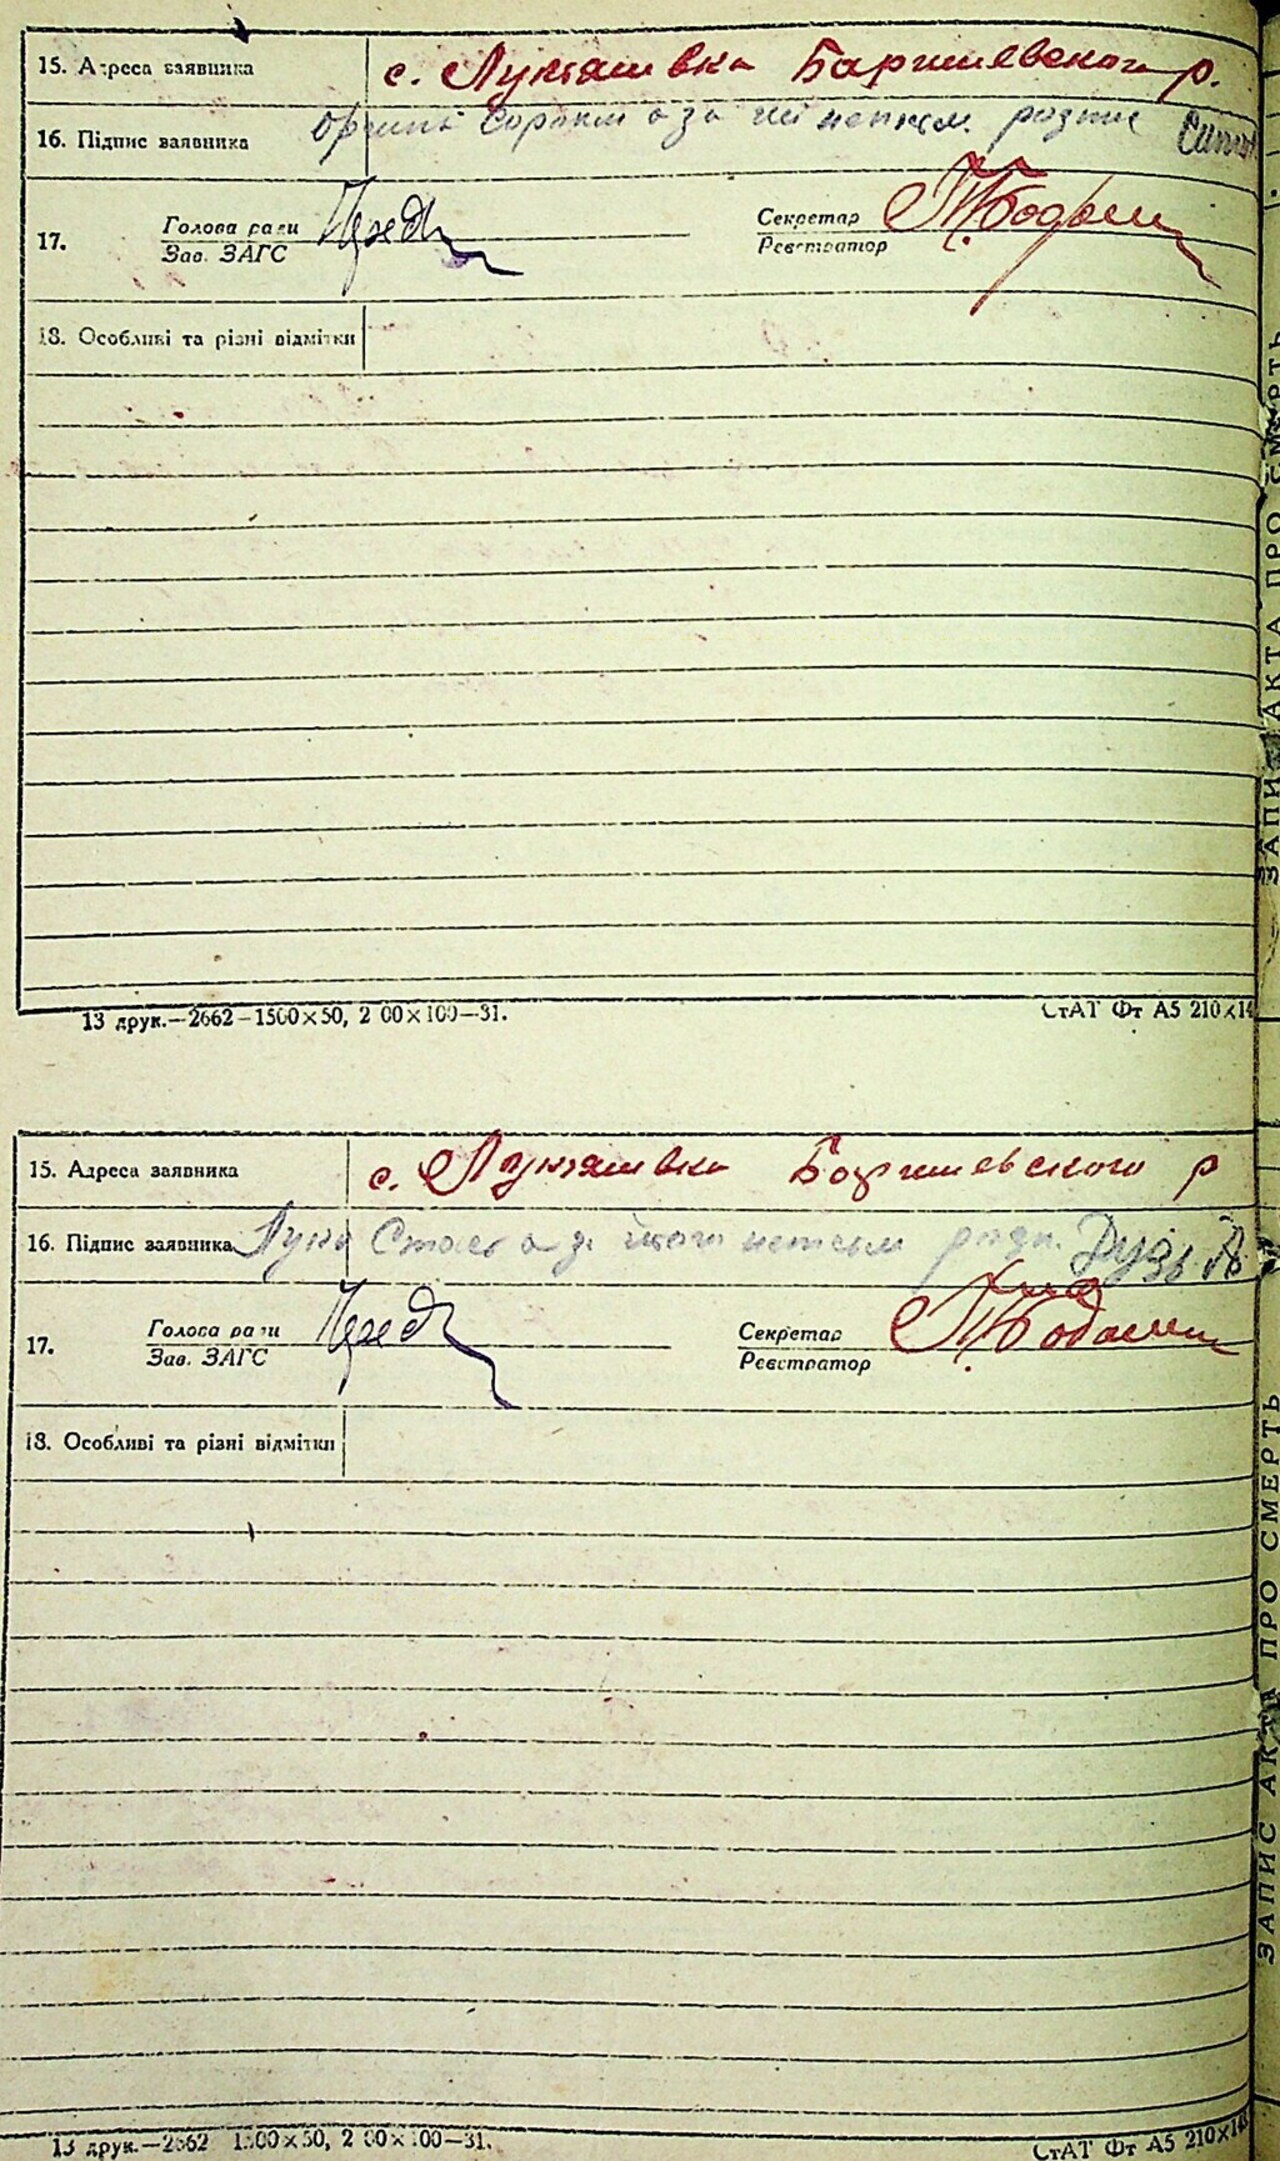 15. Адреса заявника с. Лукашивка Баришевского р.
16. Підпис заявника а за розпис
17. Голова ради Секретар
Зав. ЗАГС Реєстратор
18. Особливі та різні відмітки
13 друк.—2662—1500×50, 2 00×100—31.
СтАТ Фт А5 210×14
15. Адреса заявника с. Лукашивка Баришевского р
16. Підпис заявника Лука його Дузь
17. Голова ради Секретар
Зав. ЗАГС Реєстратор
18. Особливі та різні відмітки
13 друк.—2662 1500×50, 2 00×100—31.
СтАТ Фт А5 210×148
ЗАПИС АКТА ПРО СМЕРТЬ
ЗАПИС АКТА ПРО СМЕРТЬ